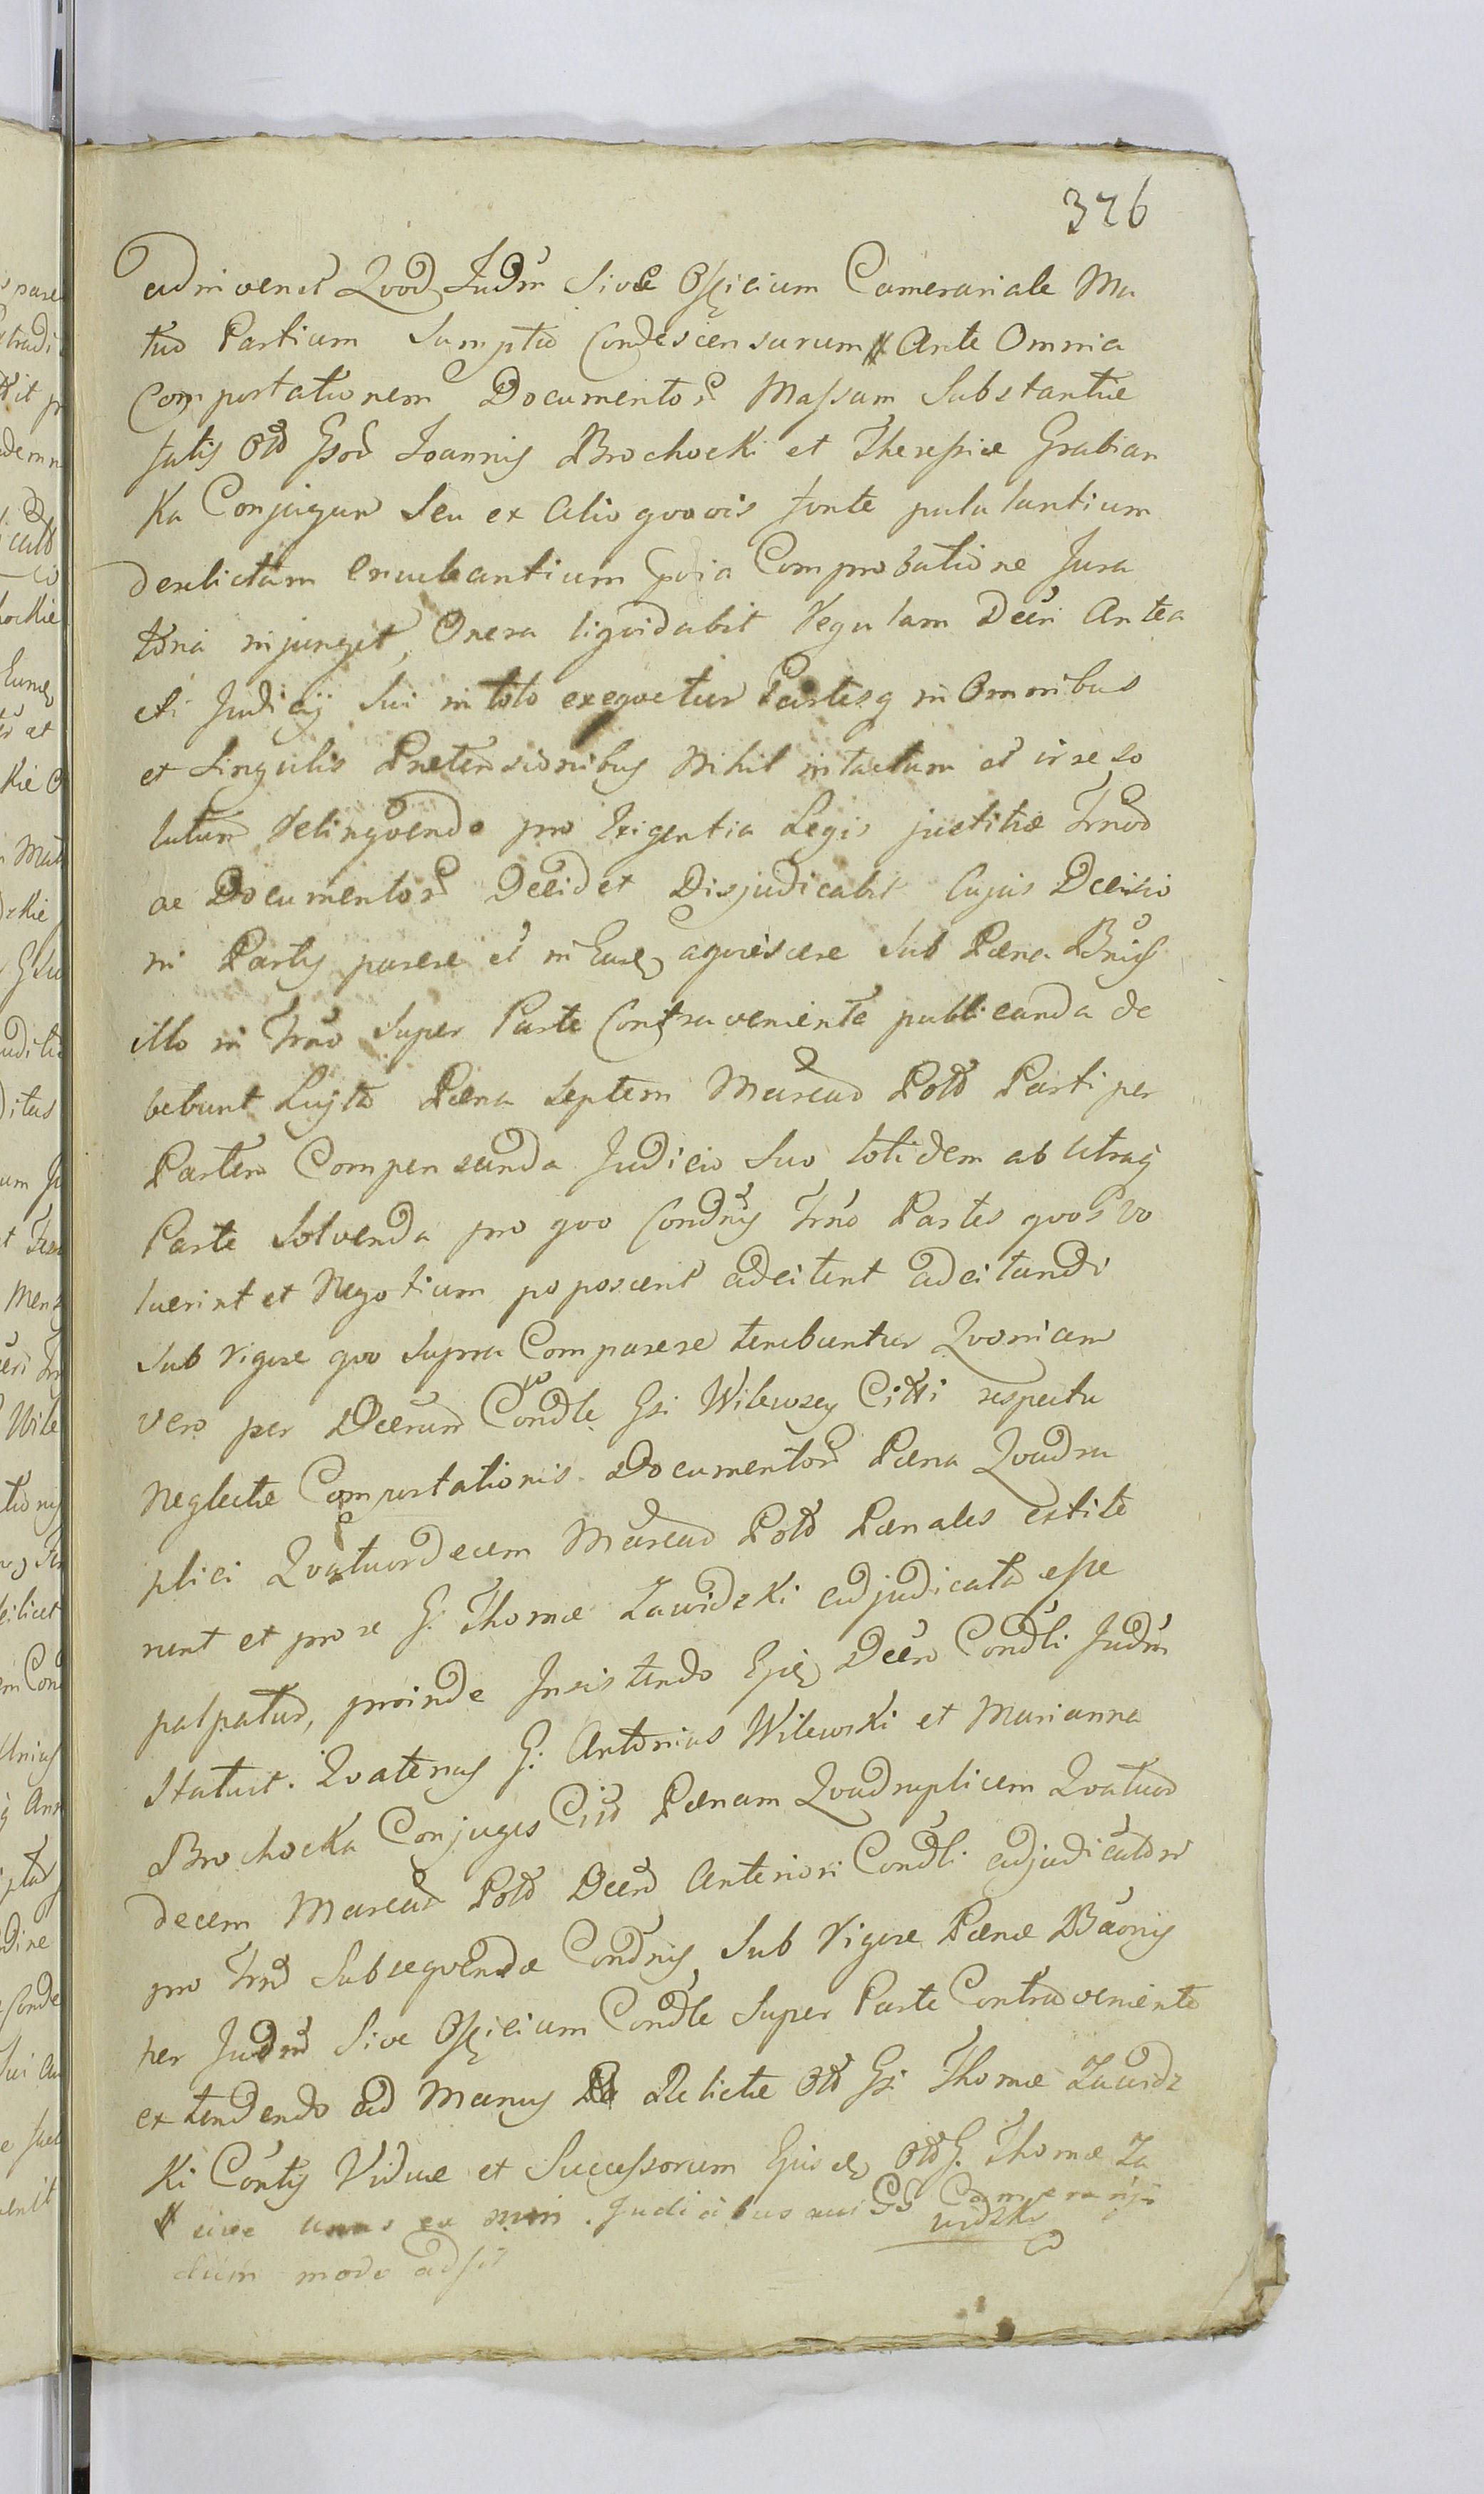 326
adinvenit Qvod Judm Sive Officium Camerariale Mu
tuo Partium Sumptu Condescensurum # Ante Omnia
Comportationem Documentor Massam Substantiæ
fatis Olo Gsor Joannis Brochocki et Theresiæ Grabian
ka Conjugum Seu ex Alio qvovis fonte pululantium
derelictam Comprobatione Jura
toria injunget, Onera liqvidabit Regulam Decri Antea
cti Judicij Sui in toto exeqvetur Partesq in Omnibus
et Singulis Prætensionibus Nihil intactum et irreso
lutum Relinqvendo pro Exigentia Legis justitiæ Trnor
ac Documentor Decidet Disjudicabit Cujus Decisio
ni Partes parere et in Eade aqviescere Sub Pæna Bnis
illo in Trno Super Parte Contraveniente publicanda de
bebunt Lucta Pæna Septem Marcar Poll Parti per
Partem Compensanda Judicio Suo totidem ab Utraq
Parte Solvenda pro qvo Condnis Trno Partes qvos vo
luerint et Negotium poposcerit adcitent adcitandi
Sub rigore qvo Supra Comparere tenebuntur Qvoniam
vero per Decrum Condle Gsi Wilewscy Citti respectu
Neglectæ Comportationis Documentor Pæna Qvadru
plici Qvatuordecem Marcar Poll Pænales extite
runt et pro re G. Thomæ Zawidzki adjudicata esse
palpatur, proinde Insistendo Ejde Decro Condli Judm
Statuit. Qvatenus G. Antonius Wilewski et Marianna
Brochocka Conjuges Citi Pænam Qvadruplicem Qvatuor
decem Marcar Poll Decro Anteriori Condli adjudicatam
pro Trno Subseqvendæ Condnis Sub Rigore Pænæ Baonis
per Judm Sive Officium Condle Super Parte Contraveniente
extendendo ad Manus Relictæ Olo Gsi Thomæ Zawidz
ki Contis Viduæ et Successorum Ejusde Olo G. Thomæ Za
widzki
# sive unus ex Judicibus sui GG Camerarijs
dum modo adsit